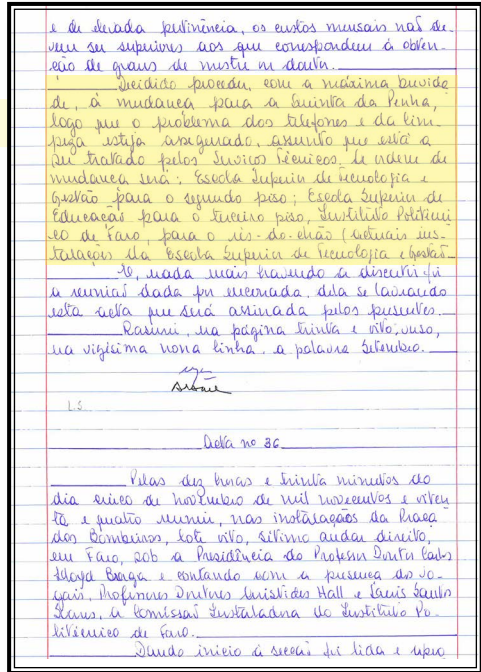 e de elevada pertinência, os custos mensais não de-
vem ser superiores aos que correspondem à obten-
ção de graus de mestre ou doutor.
Decidido proceder, com a máxima brevida
de, à mudança para a Quinta da Penha,
logo que o problema dos telefones e da lim-
peza esteja assegurado, assunto que está a
ser tratado pelos Serviços Técnicos. A ordem de
mudança será: Escola Superior de Tecnologia e
Gestão para o segundo piso; Escola Superior de
Educação para o terceiro piso, Instituto Politécni
co de Faro, para o rés-do-chão (actuais ins-
talações da Escola Superior de Tecnologia e Gestão.
E, nada mais havendo a discutir foi
a reunião dada por encerrada, dela se lavrando
esta acta que será assinada pelos presentes.
Rasurei, na página trinta e oito, verso,
na vigésima nona linha, a palavra Setembro.
L.S.
Acta nº 36
Pelas dez horas e trinta minutos do
dia cinco de novembro de mil novecentos e oiten
ta e quatro reuniu, nas instalações da Praça
dos Bombeiros, lote oito, sétimo andar direito,
em Faro, sob a Presidência do Professor Doutor Carlos
Lloyd Braga e contando com a presença dos vo-
gais, Professores Doutores Aristides Hall e Luís Santos
Soares, a Comissão Instaladora do Instituto Po-
litécnico de Faro.
Dando início à secção foi lida e apro